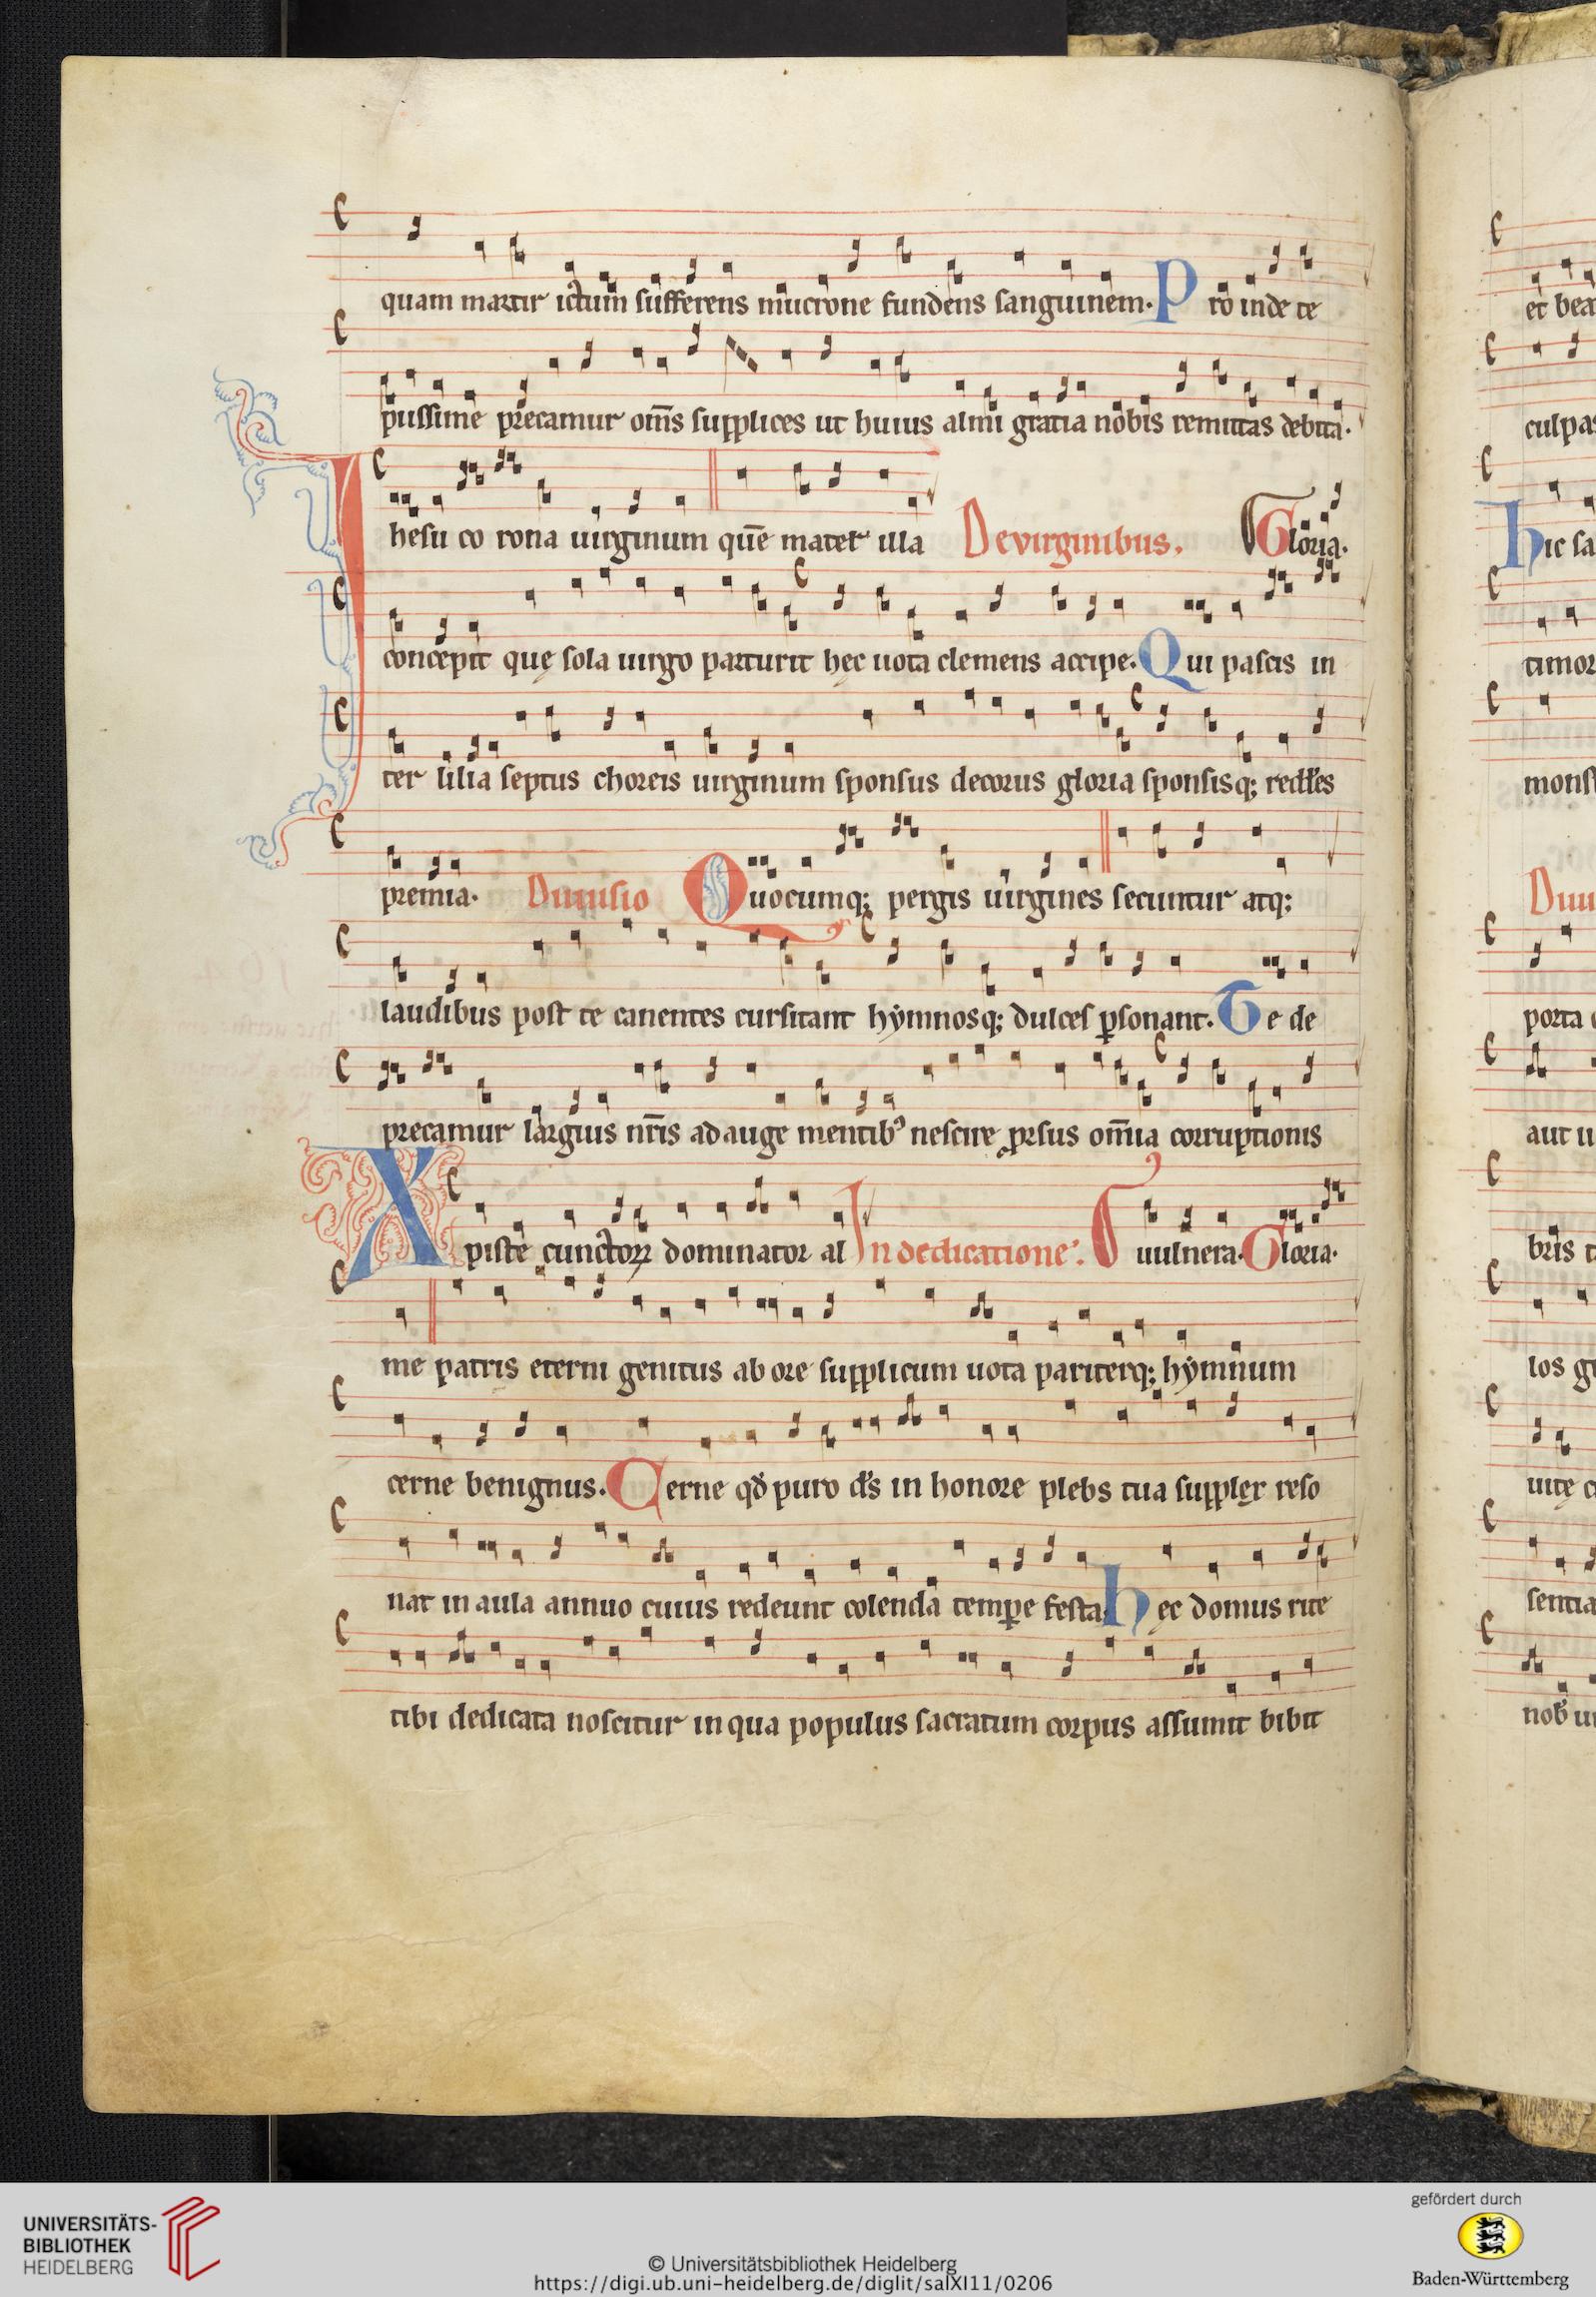 quam martir ictum sufferens mucrone fundens sanguinem. Pro inde te
piissime precamur om̄s supplices ut huius almi gratia nobis remittas debita.
Ihesu corona uirginum quē mater illa De virginibus. Gloria.
concepit quę sola uirgo parturit hęc uota clemens accipe. Qui pascis in
ter lilia septus choreis uirginum sponsus decorus gloria sponsisq; reddēs
premia. Diuisio Quocumq; pergis uirgines secuntur atq;
laudibus post te canentes cursitant hẏmnosq; dulces ꝑsonant. Te de
precamur largius nr̄is ad auge mentibꝰ nescire ꝓrsus om̄ia corruptionis
Xpiste cunctoꝝ dominator al In dedicatione. uulnera. Gloria.
me patris eterni genitus ab ore supplicum uota pariterq; hẏmnum
cerne benignus. Cerne qd̄ puro ds̄ in honore plebs tua supplex reso
nat in aula annuo cuius redeunt colenda temꝑe festa. Hęc domus rite
tibi dedicata noscitur in qua populus sacratum corpus assumit bibit
et bea
culpas
Hic sa
timor
monst
Diui
porta
aut u
bris t
los gr
uitę c
sentia
UNIVERSITÄTS-
BIBLIOTHEK
HEIDELBERG
© Universitätsbibliothek Heidelberg
https://digi.ub.uni-heidelberg.de/diglit/salXI11/0206
gefördert durch
Baden-Württemberg